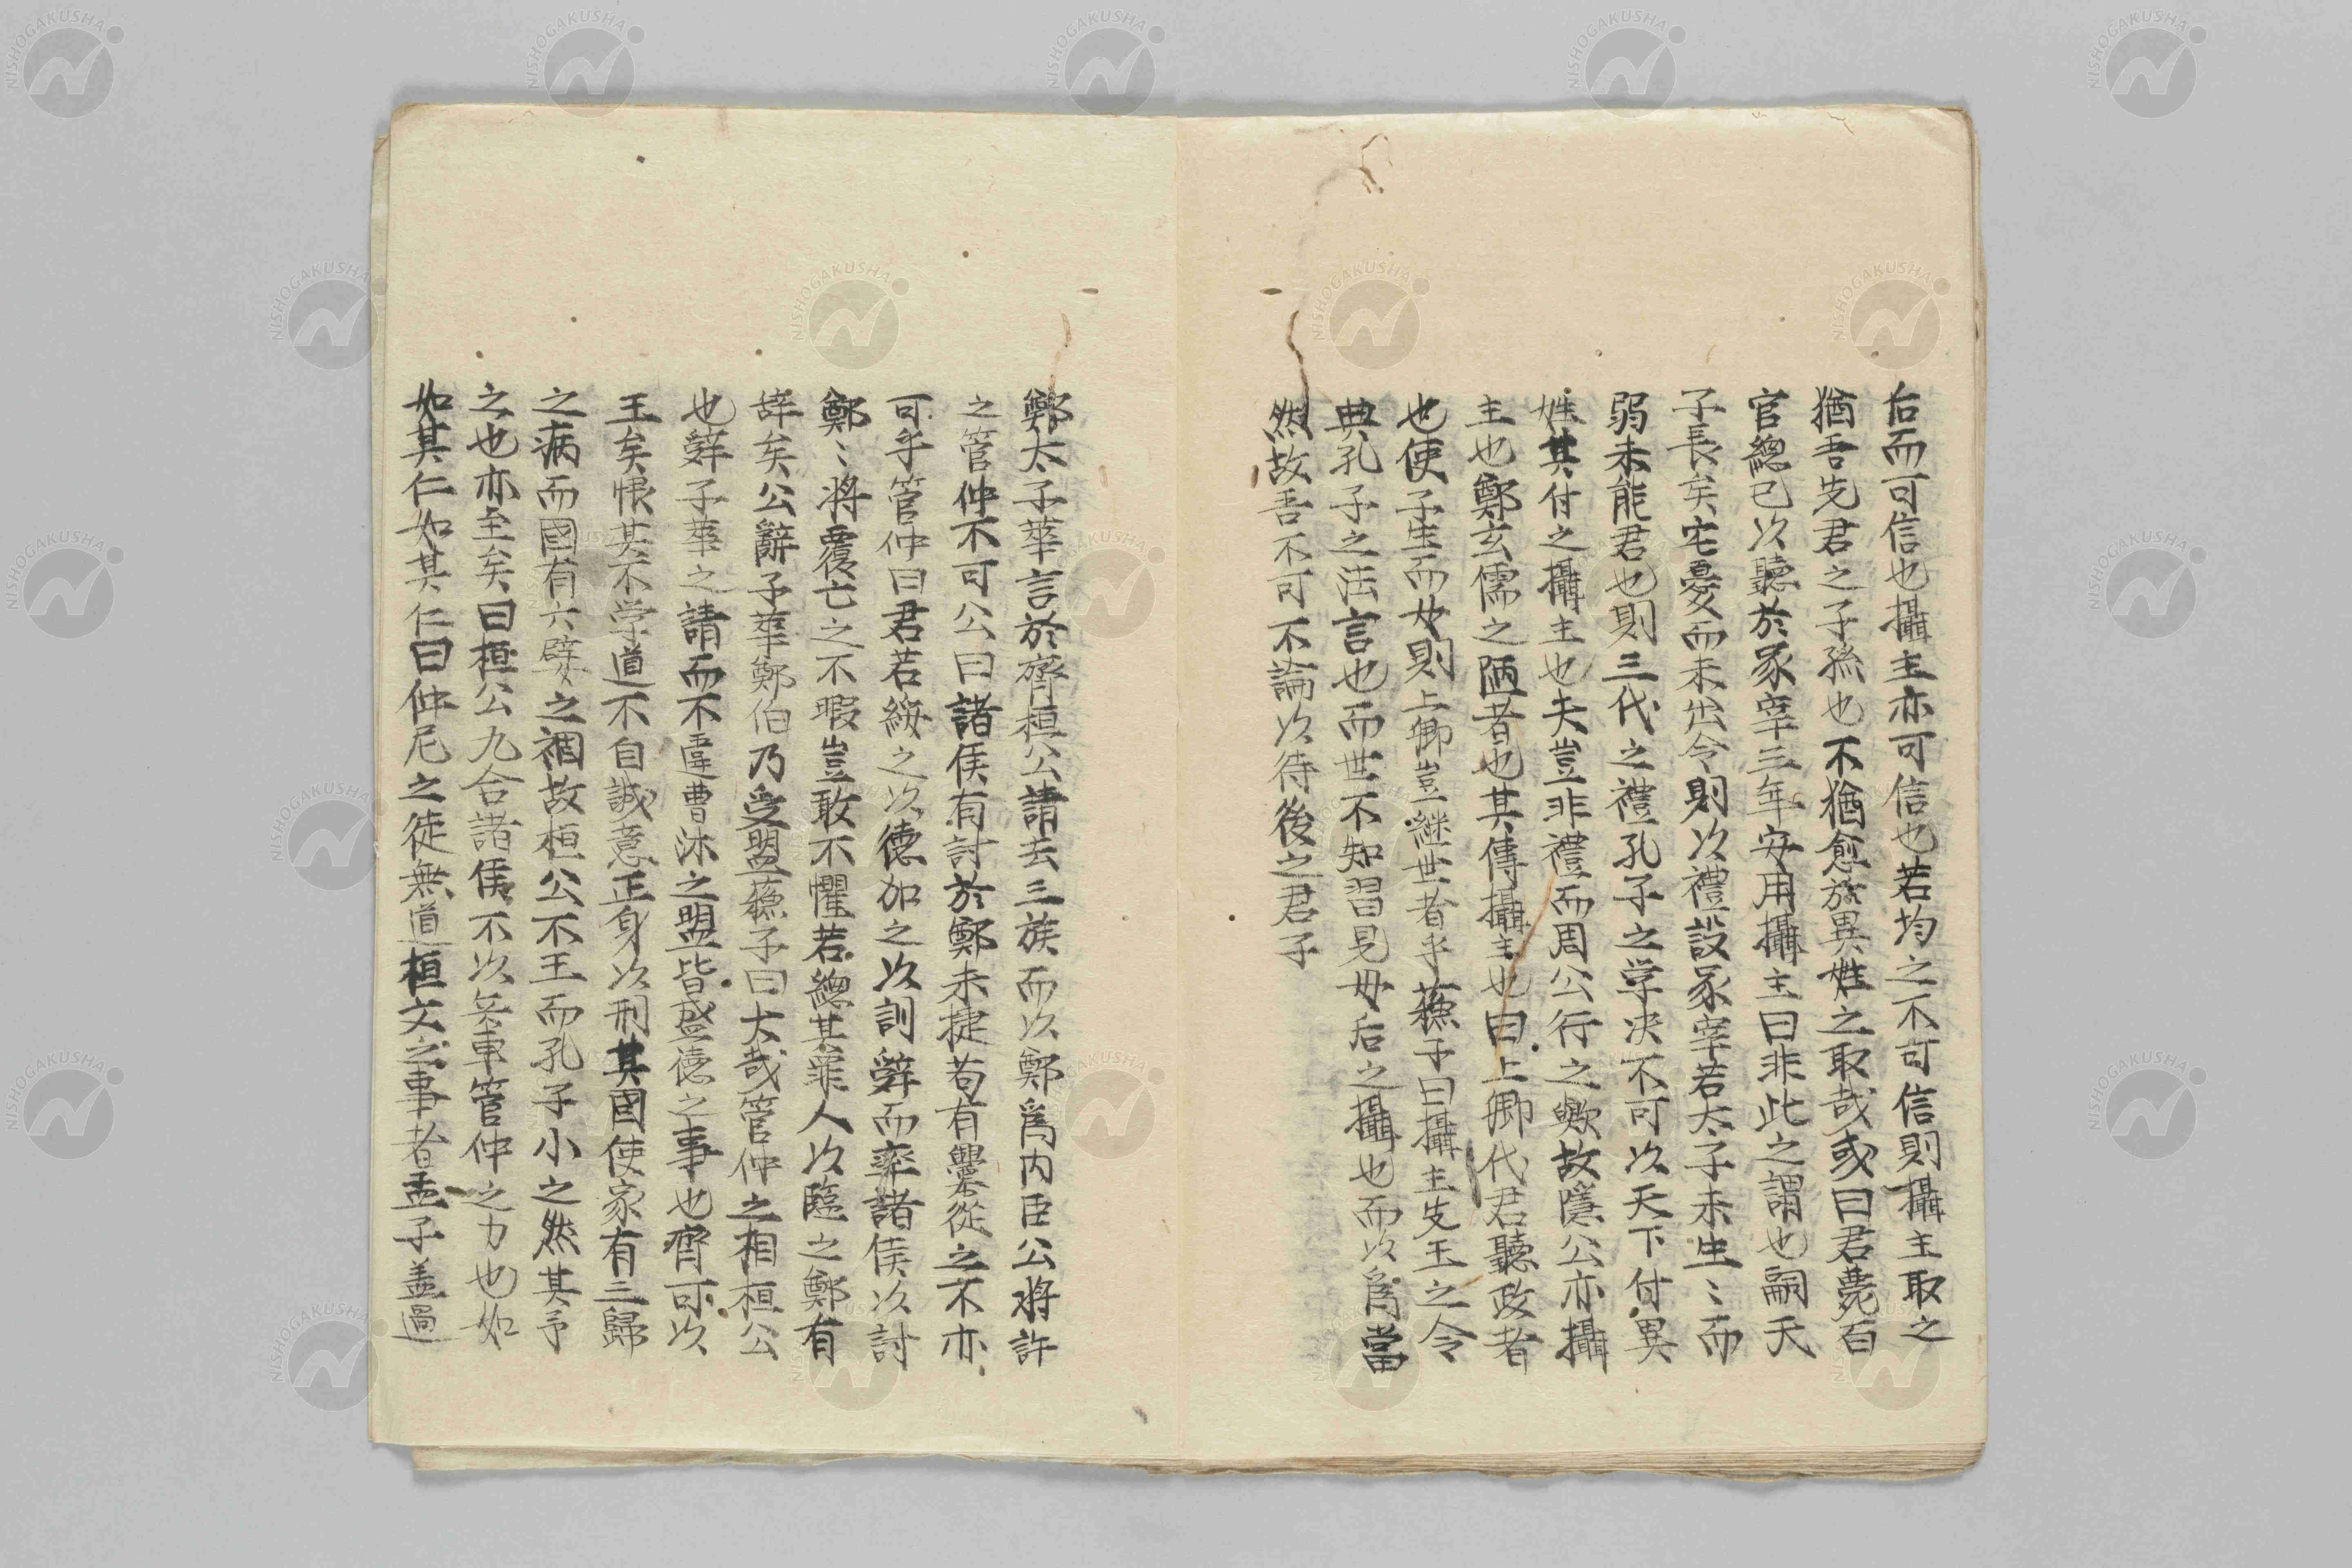 后而可信也攝主亦可信也若均之不可信則攝主取之
猶吾先君之子孫也不猶愈於異姓之取哉或曰君薨百
官總己以聽於冢宰三年安用攝主曰非此之謂也嗣天
子長矣宅憂而未出令則以禮設冢宰若太子未生〻而
弱未能君也則三代之禮孔子之学决不可以天下付異
姓其付之攝主也夫豈非禮而周公行之歟故隱公亦攝
主也鄭玄儒之陋者也其傳攝主也曰上卿代君聽政者
也使子生而女則上卿豈継世者乎蘓子曰攝主先王之令
典孔子之法言也而世不知習見母后之攝也而以爲當
然故吾不可不論以待後之君子
鄭太子華言於齊桓公請去三族而以鄭爲内臣公將許
之管仲不可公曰諸侯有討於鄭未捷苟有舋從之不亦
可乎管仲曰君若綏之以德加之以訓辭而率諸侯以討
鄭〻將覆亡之不暇豈敢不懼若總其罪人以臨之鄭有
辞矣公辭子華鄭伯乃受盟蘓子曰大哉管仲之相桓公
也辭子華之請而不違曹沫之盟皆盛德之事也齊可以
王矣恨其不学道不自誠意正身以刑其國使家有三歸
之病而國有六嬖之禍故桓公不王而孔子小之然其予
之也亦至矣曰桓公九合諸侯不以兵車管仲之力也如
如其仁如其仁曰仲尼之徒無道桓文之事者孟子盖過
NISHOGAKUSHA